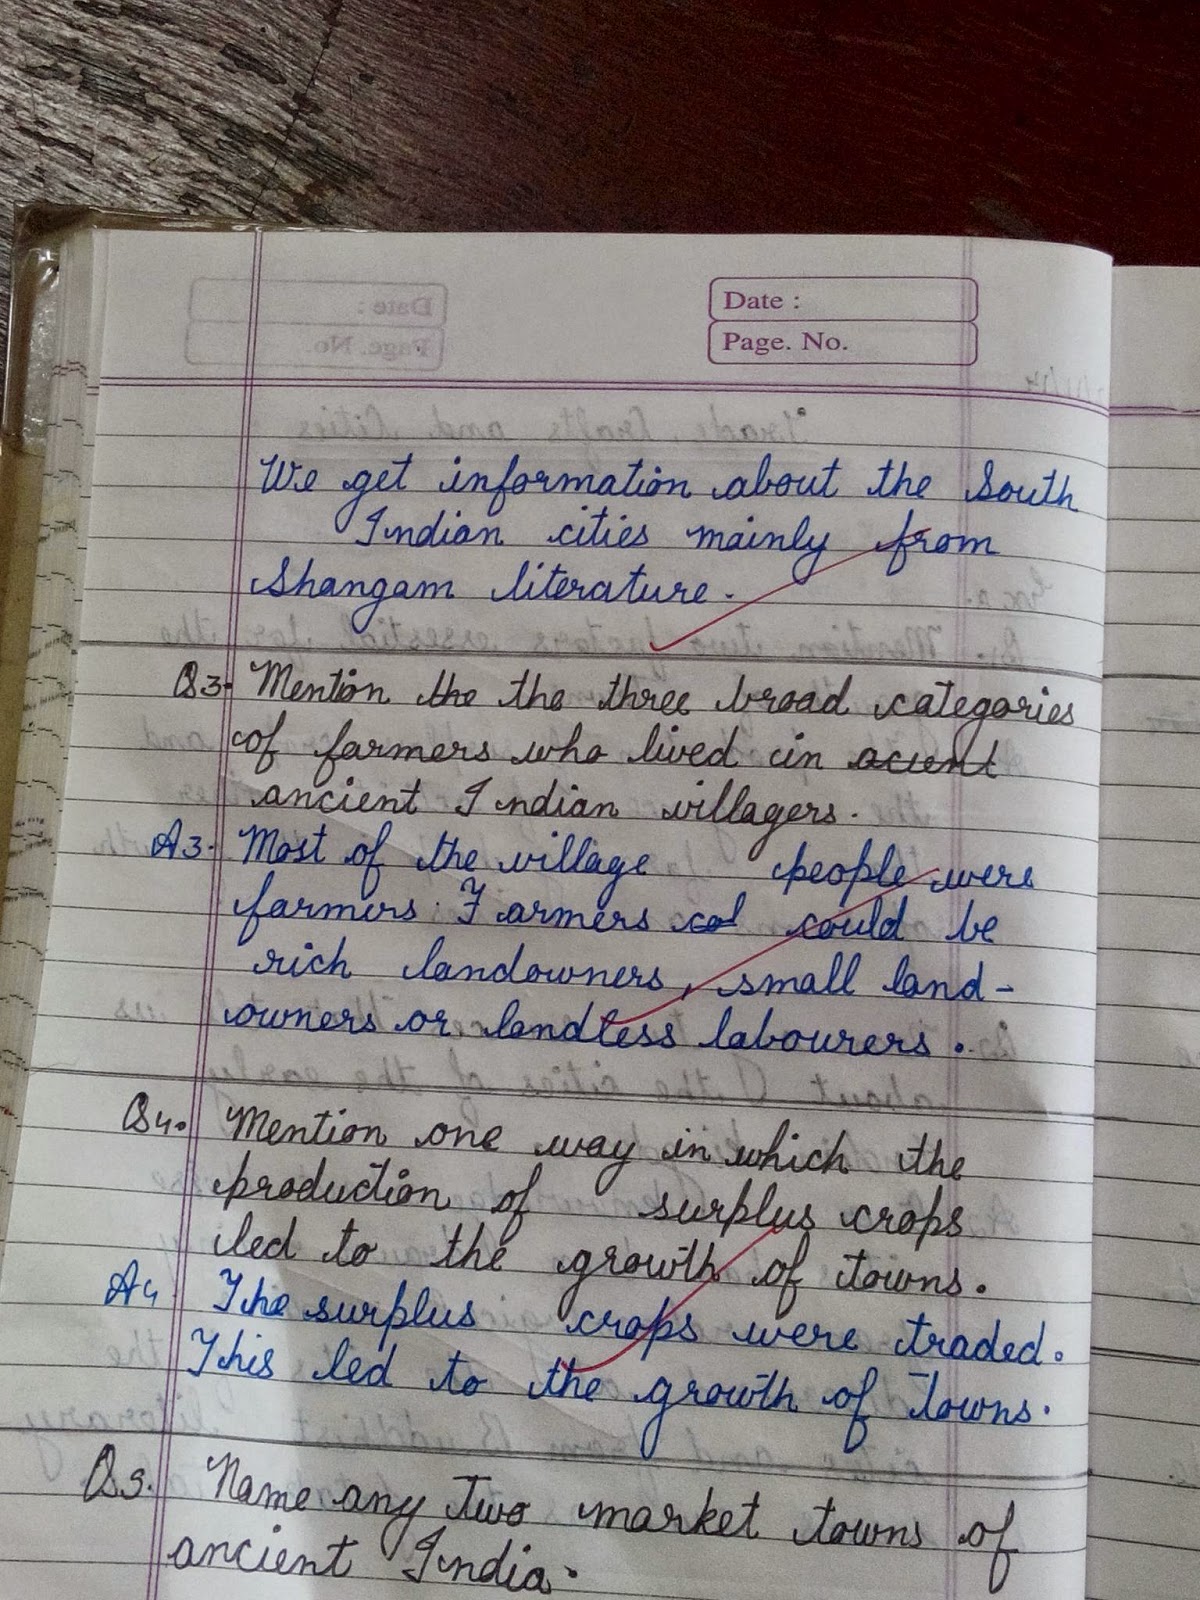 Date :
Page. No.
We get information about the South
Indian cities mainly from
Shangam literature.
Q3. Mention the the three broad categories
of farmers who lived in acient
ancient Indian villagers.
A3. Most of the village people were
farmers. Farmers col could be
rich landowners, small land-
owners or landless labourers.
Q4. Mention one way in which the
production of surplus crops
led to the growth of towns.
A4 The surplus crops were traded.
This led to the growth of towns.
Q5. Name any two market towns of
ancient India.